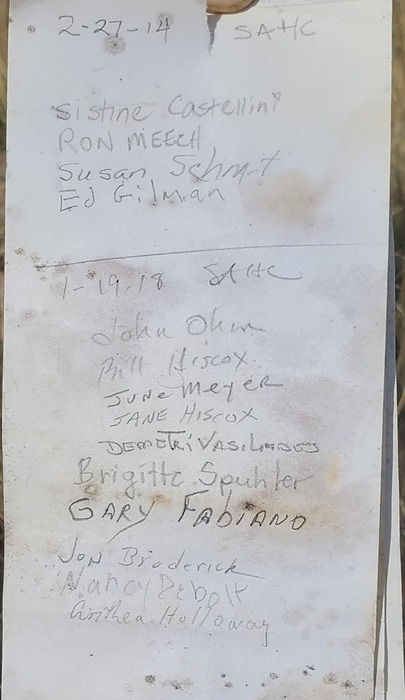 2-27-14 SAHC
Sistine Castellini
RON MEECH
Susan Schmit
Ed Gilman
1-19-18 SAHC
John Ohm
Bill Hiscox
JUNE MEYER
JANE HISCOX
DEMETRI VASILIADES
Brigitte Spuhler
GARY FABIANO
JON Broderick
Nancy Debolt
Anthea Holloway